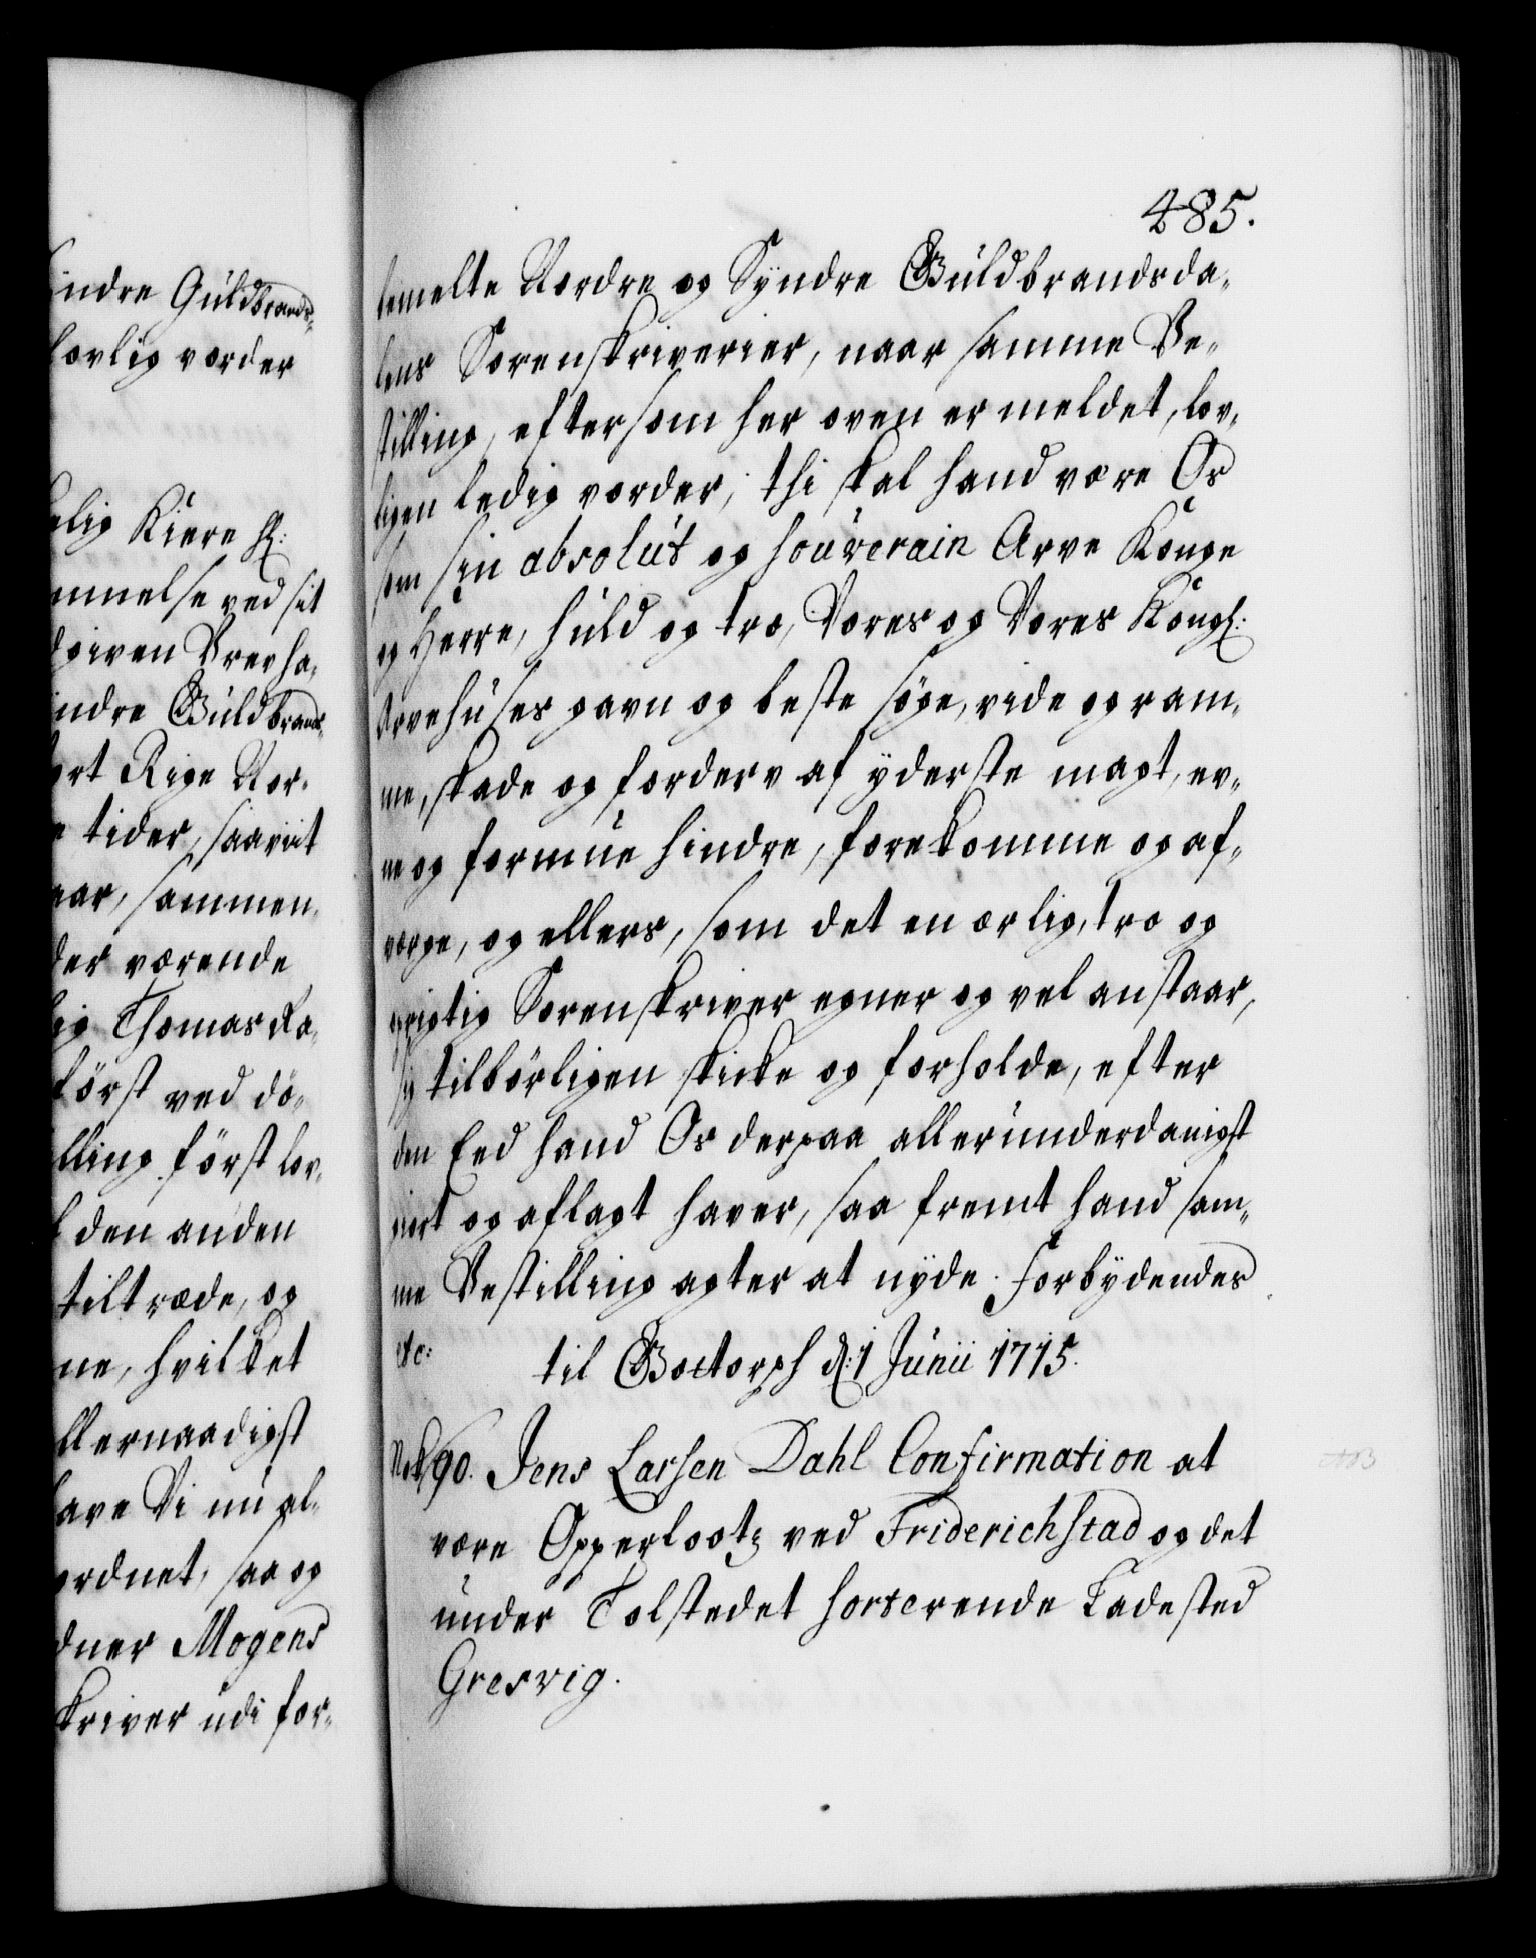 indre Guldbrands-
lovlig vorder
elig Kiere H:
mmelse ved sit
dgiven Brev ha-
ndre Guldbrands-
ort Rige Nor-
e tider, saavit
aar, sammen-
der værende
ig Thomas Ra-
först ved dö-
lling först lov-
l den anden
tiltræde, og
ne, hvilket
llernaadigst
have Vi nu al-
ordnet, saa og
dner Mogens
skriver udi for-
485.
bemelte Nordre og Syndre Guldbrandsda-
lens Sorenskriverier, naar samme Be-
stilling, eftersom her oven er meldet, lov-
ligen ledig vorder, thi skal hand være Os
som sin absolut og souverain Arve Konge
og Herre, huld og tro, Vores og Vores Kongl:
Arvehuses gavn og beste søge, vide og ram-
me, skade og forderv af yderste magt, ev-
ne og formue hindre, forekomme og af-
værge, og ellers, som det en ærlig, tro og
oprigtig Sorenskriver egner og vel anstaar,
sig tilbörligen skicke og forholde, efter
den Eed hand Os derpaa allerunderdanigst
giort og aflagt haver, saa fremt hand sam-
me Bestilling agter at nyde. Forbydendes
etc:
til Gottorph d: 1 Junii 1715.
90. Jens Larsen Dahl Confirmation at
være Opperlootz ved Friderichstad og det
under Tolstedet sorterende Ladested
Gresvig.